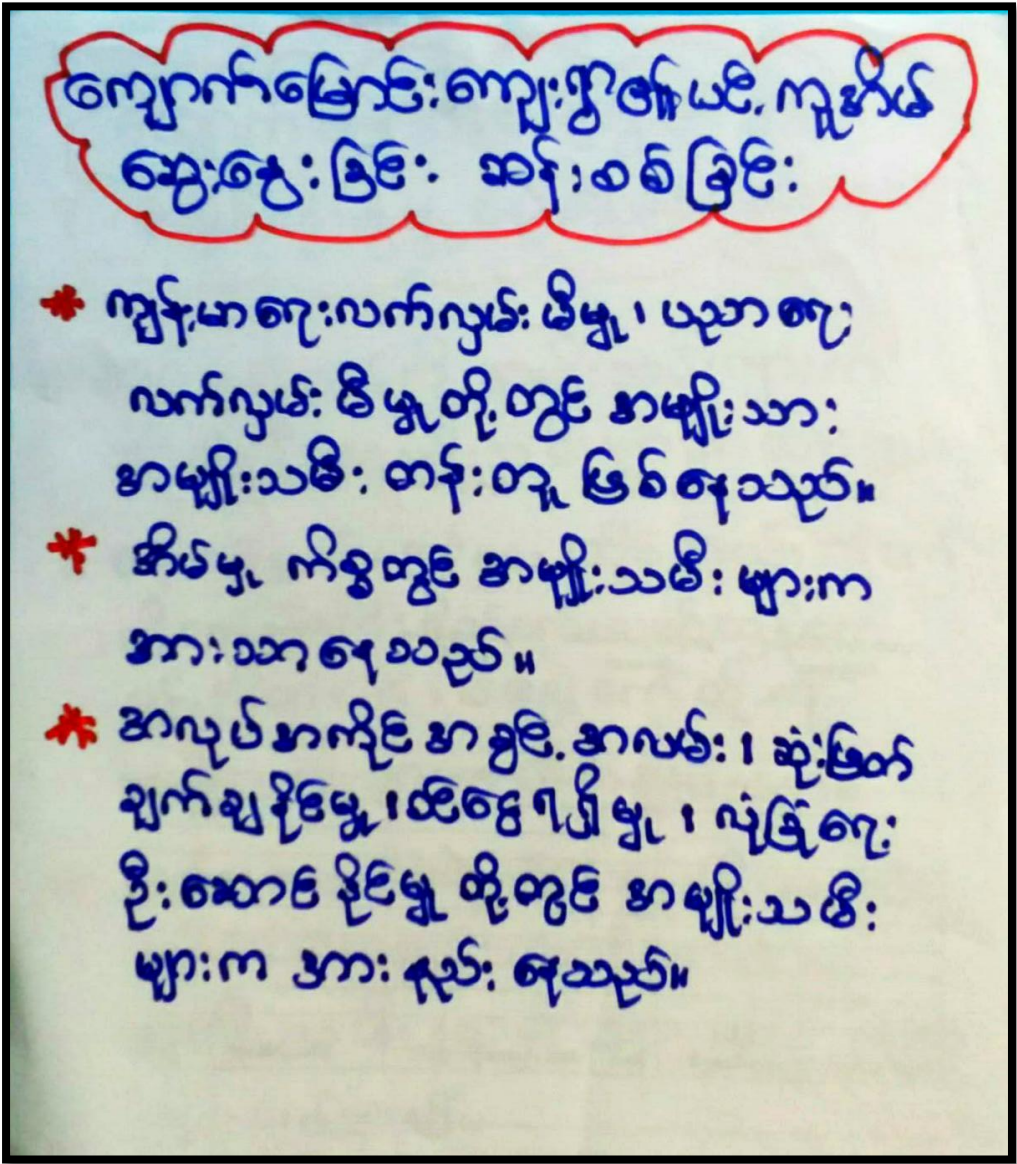 ကျောက်မြောင်းကျေးရွာ၏ ယင့်ကူအိမ်
ဆွေးနွေးခြင်း ဆန်းစစ်ခြင်း
* ကျန်းမာရေးလက်လှမ်းမီမှု၊ ပညာရေး
လက်လှမ်းမီမှုတို့တွင် အမျိုးသား
အမျိုးသမီး တန်းတူ ဖြစ်နေသည်။
* အိမ်မှု ကိစ္စတွင် အမျိုးသမီးများက
အားသာနေသည်။
* အလုပ်အကိုင်အခွင့်အလမ်း၊ ဆုံးဖြတ်
ချက်ချနိုင်မှု၊ ဝင်ငွေရရှိမှု၊ လုံခြုံရေး
ဦးဆောင်နိုင်မှု တို့တွင် အမျိုးသမီး
များက အားနည်းနေသည်။